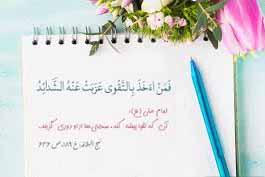 فَمَنْ أَخَذَ بِالتَّقْوَى عَزَبَتْ عَنْهُ الشَّدَائِدُ
امام علی (ع):
آن که تقوا پیشه کند، سختی‌ها از او دوری گزیند.
نهج البلاغه، خ ۱۹۸، ص ۶۳۶